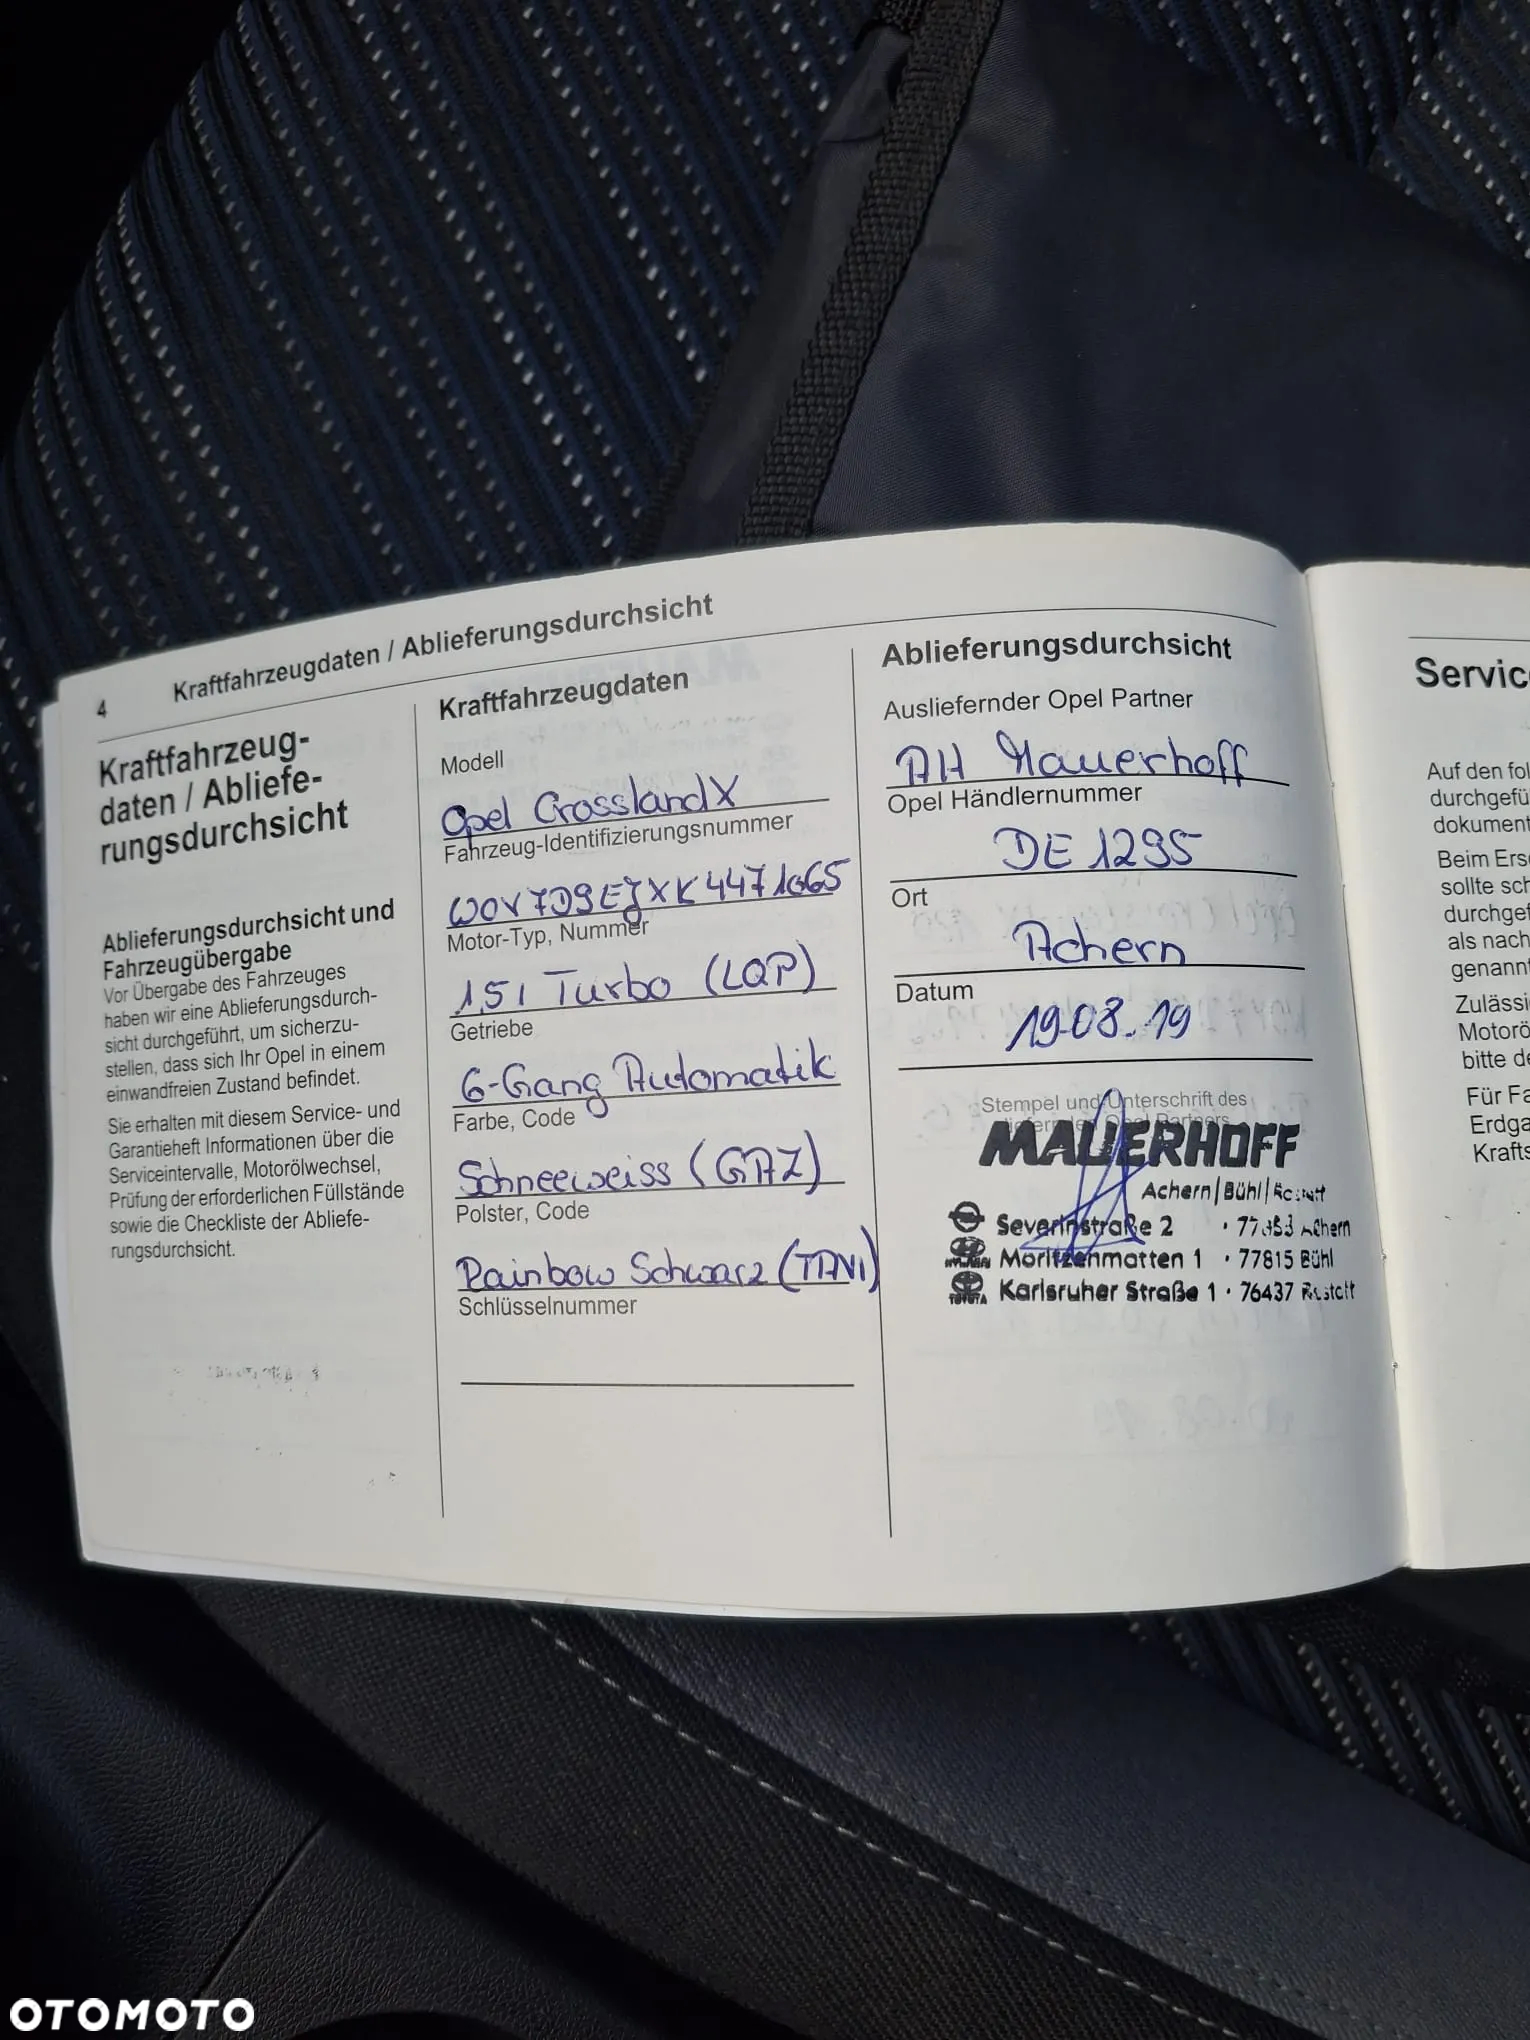 4 Kraftfahrzeugdaten / Ablieferungsdurchsicht
Kraftfahrzeug-
daten / Abliefe-
rungsdurchsicht
Ablieferungsdurchsicht und
Fahrzeugübergabe
Vor Übergabe des Fahrzeuges
haben wir eine Ablieferungsdurch-
sicht durchgeführt, um sicherzu-
stellen, dass sich Ihr Opel in einem
einwandfreien Zustand befindet.
Sie erhalten mit diesem Service- und
Garantieheft Informationen über die
Serviceintervalle, Motorölwechsel,
Prüfung der erforderlichen Füllstände
sowie die Checkliste der Abliefe-
rungsdurchsicht.
Kraftfahrzeugdaten
Modell
Opel Crossland X
Fahrzeug-Identifizierungsnummer
W0V7D9EJXK4471065
Motor-Typ, Nummer
1,5l Turbo (LQP)
Getriebe
6-Gang Automatik
Farbe, Code
Schneeweiss (GAZ)
Polster, Code
Rainbow Schwarz (TAVI)
Schlüsselnummer
Ablieferungsdurchsicht
Ausliefernder Opel Partner
AH Mauerhoff
Opel Händlernummer
DE 1295
Ort
Achern
Datum
19.08.19
Stempel und Unterschrift des
MAUERHOFF
Achern | Bühl | Rastatt
Severinstraße 2 · Achern
HYUNDAI Moritzenmatten 1 · 77815 Bühl
TOYOTA Karlsruher Straße 1 · 76437 Rastatt
Servic
Auf den fol
durchgefü
dokument
Beim Erse
sollte sch
durchgef
als nach
genannt
Zulässi
Motorö
bitte de
Für Fa
Erdga
Krafts
OTOMOTO